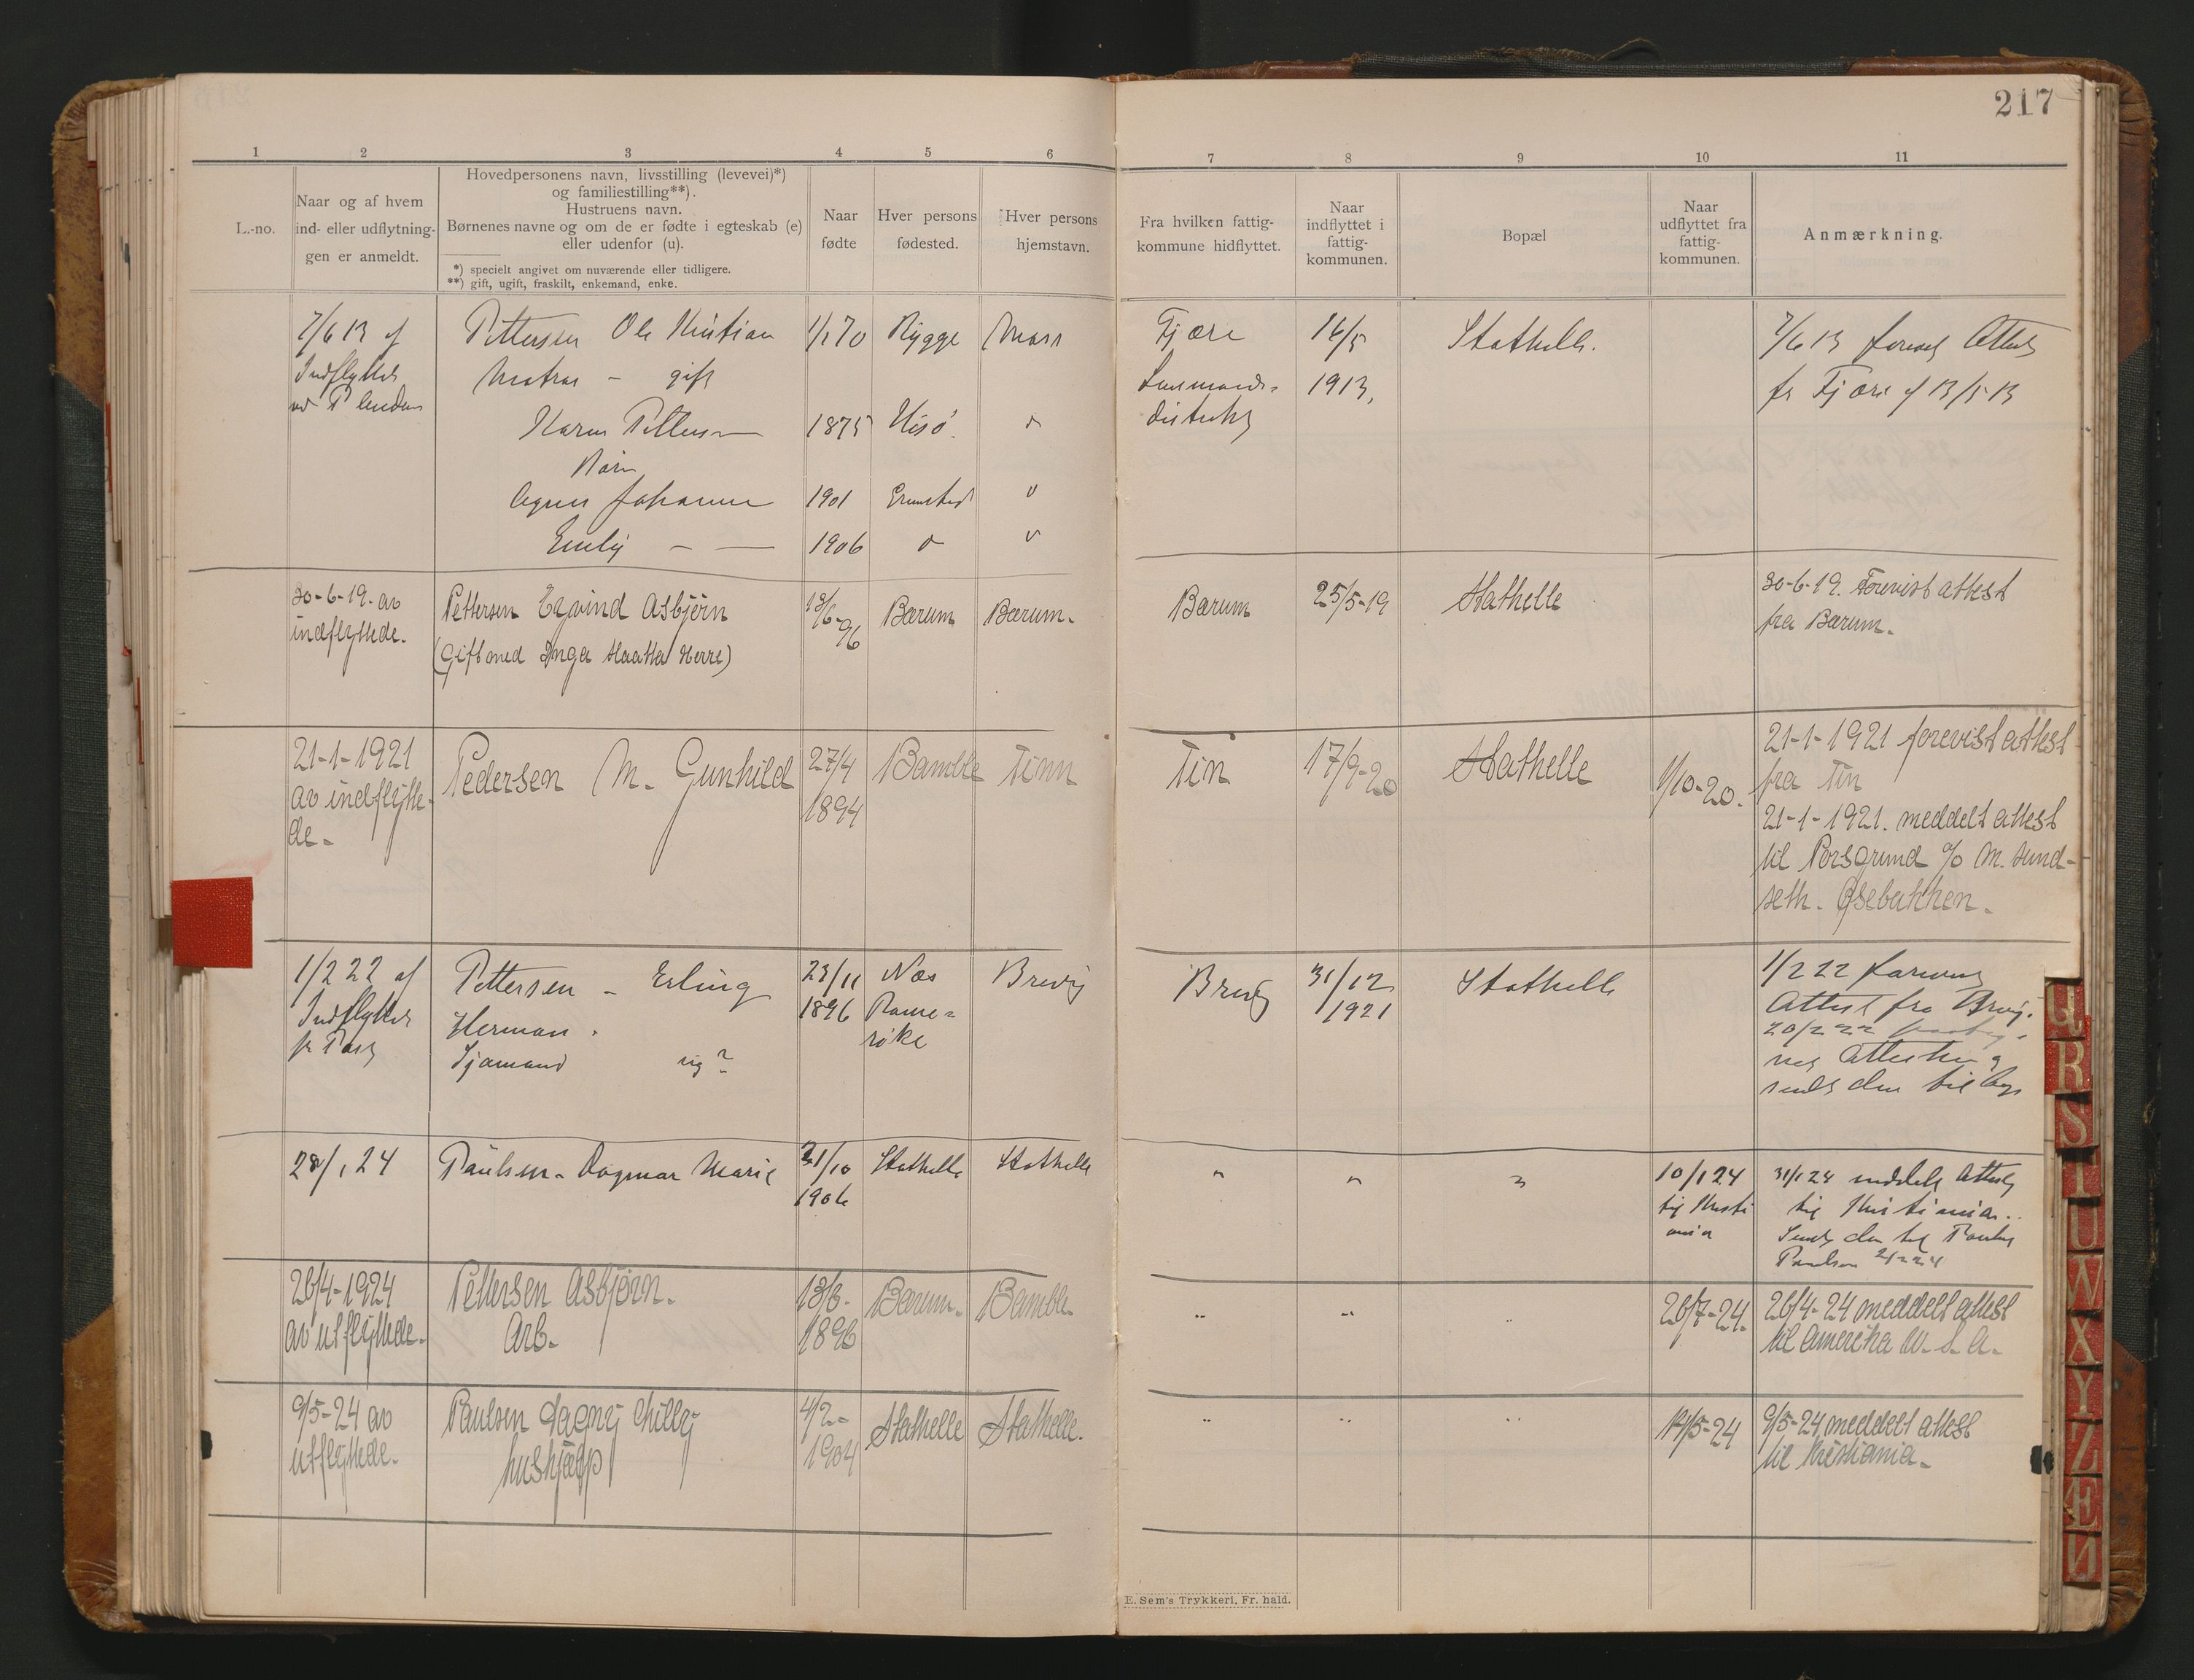 217
1 2 3 4 5 6 7 8 9 10 11
L.-no.
Naar og af hvem
ind- eller udflytning-
gen er anmeldt.
Hovedpersonens navn, livsstilling (levevei)*)
og familiestilling**).
Hustruens navn.
Børnenes navne og om de er fødte i egteskab (e)
eller udenfor (u).
*) specielt angivet om nuværende eller tidligere.
**) gift, ugift, fraskilt, enkemand, enke.
Naar
fødte
Hver persons
fødested.
Hver persons
hjemstavn.
Fra hvilken fattig-
kommune hidflyttet.
Naar
indflyttet i
fattig-
kommunen.
Bopæl
Naar
udflyttet fra
fattig-
kommunen.
Anmærkning.
7/6 13 af
Indflytted
Pettersen Ole Kristian
1/1 70
Rygge
Moss
Fjære
14/5
Stathelle.
Matros – gift
Lensmands-
1913,
distrikt
7/6 13 forevist Attest
fr Fjære af 13/5 13
Karen Pettersen
1875
Hisø.
Børn
Agnes Johanne
1901
Grimstad
Emily
1906
30-6-19. av
indflyttede.
Pettersen Eyvind Asbjørn
(Gift med Inga Haatta Herre)
13/6-96
Bærum
Bærum.
Bærum
25/5-19
Stathelle
30-6-19. Forevist attest
fra Bærum.
21-1-1921
av indflytte-
de.
Pedersen M. Gunhild
27/4
1894
Bamble
Tinn
Tin
17/9-20
Stathelle
1/10-20.
21-1-1921 forevist attest
fra Tin
21-1-1921. meddelt attest
til Porsgrund c/o M. Sund-
seth. Osebakken.
1/2 22 af
Indflytted
Pettersen – Erling
Herman.
Sjømand ug?
23/11
1896
Næs
Rome-
rike
Brevig
Brevig
31/12
1921
Stathelle
1/2 22
Attest fra Brevig.
20/2 22
28/1 24
Paulsen – Dagmar Marie
21/10
1906
Stathelle
Stathelle
" " "
10/1 24
til Kristi
ania
31/1 24 meddelt Attest
til Kristiania.
26/4-1924
av utflyttede.
Pettersen Asbjørn.
Arb.
13/6-
1896
Bærum.
Bamble.
" " "
26/7-24.
26/4-24 meddelt attest
til Amerika U. S. A.
9/5-24 av
utflyttede.
Paulsen Dagny Milly
hushjælp
4/2-
1904
Stathelle
Stathelle.
" " "
14/5-24
9/5-24 meddelt attest
til Kristiania.
E. Sem's Trykkeri, Fr. hald.
Q
R
S
T
U
W
X
Y
Z
Æ